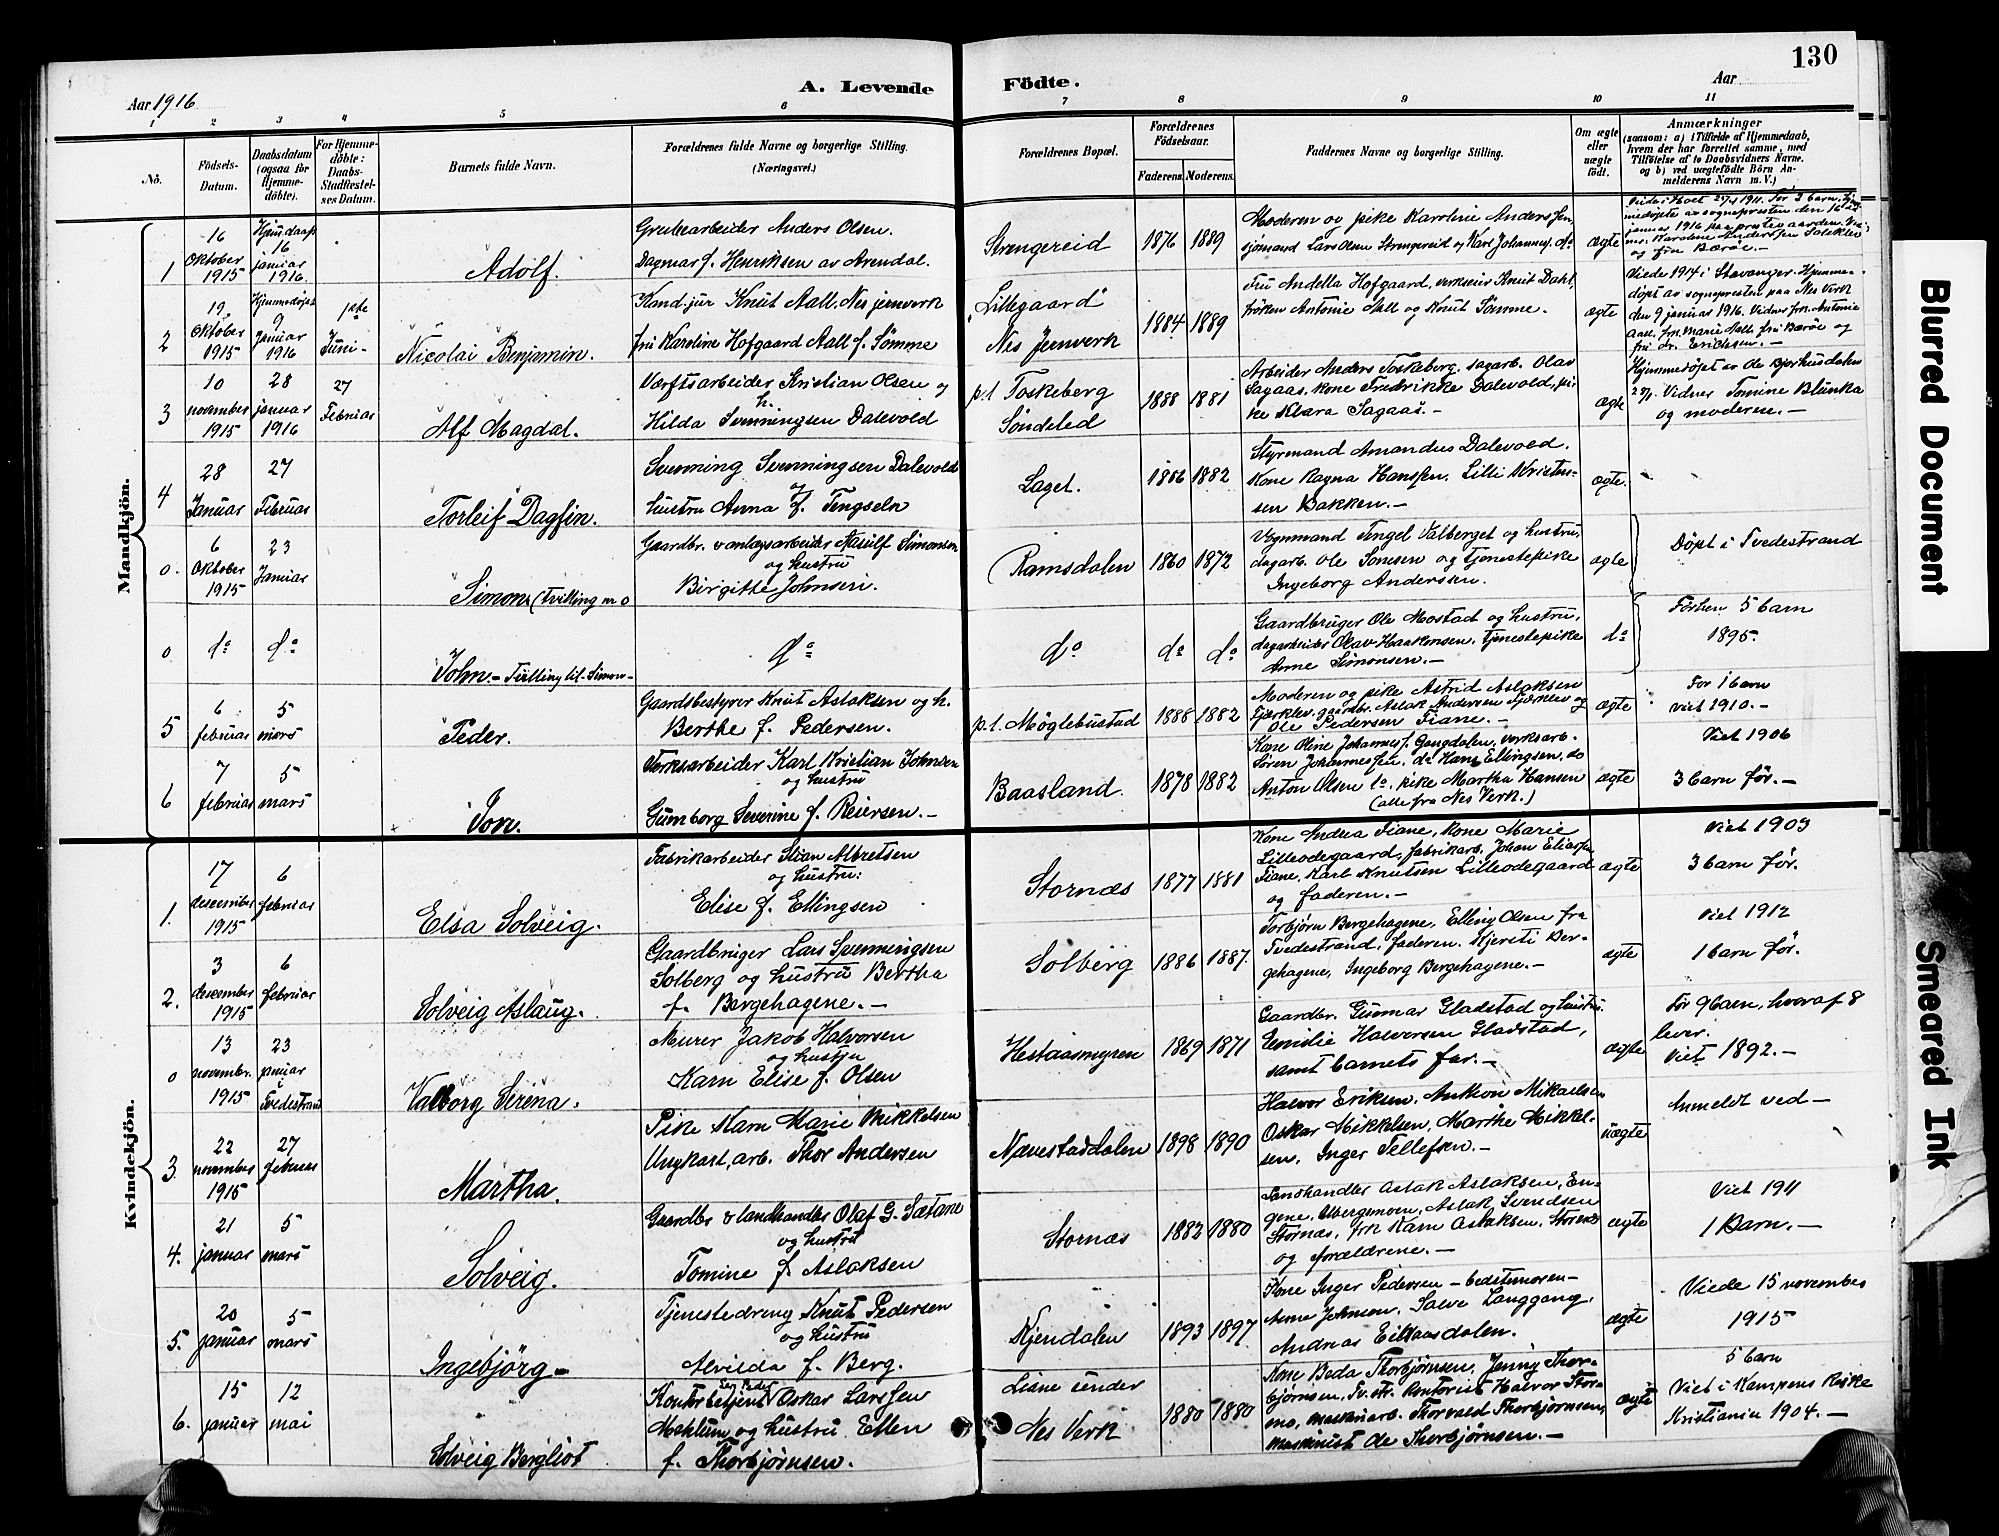 130
Aar 1916
A. Levende
Födte.
Aar
1 2 3 4 5 6 7 8 9 10 11
No.
Födsels-Datum.
Daabsdatum (ogsaa for Hjemmedöbte).
For Hjemmedöbte: Daabs-Stadfestelses Datum.
Barnets fulde Navn.
Forældrenes fulde Navne og borgerlige Stilling. (Næringsvei.)
Forældrenes Bopæl.
Forældrenes Födselsaar.
Faderens. Moderens.
Faddernes Navne og borgerlige Stilling.
Om ægte eller uægte födt.
Anmærkninger
(saasom: a) i Tilfælde af Hjemmedaab, hvem der har forrettet samme, med Tilföielse af to Daabsvidners Navne. og b) ved uægtefödte Börn Anmelderens Navn m. V.)
Mandkjön.
1
16 Oktober 1915
Hjemdaab 16 januar 1916.
Adolf.
Grubearbeider Anders Olsen.
Dagmar f. Henriksen av Arendal.
Strengereid
1876 1889
Moderen og pike Karoline Anderssen,
sjömand Lars Olsen Strengereid og Karl Johannes.
ægte
2
19 Oktober 1915
Hjemmedøpt 9 Januar 1916
1ste Juni
Nicolai Benjamin.
Kand. jur Knut Aall. Nes jernverk
fru Karoline Hofgaard Aall f. Sømme
"Lillegaard"
Nes Jernverk
1884 1889
Fru Andella Hofgaard, verkseier Knut Dahl,
frøken Antonie Aall og Knut Sømme.
ægte
Viede 1914 i Stavanger. Hjemme-
døpt av sognepresten paa Nes Verk
den 9 januar 1916. Vidner frk. Antonie
Aall, frk. Marie Aall. fru Barøe og
fru dr. Ericksen.
3
10 november 1915
28 januar 1916
27 Februar
Alf Magdal.
Værftsarbeider Kristian Olsen og
h.
Hilda Svenningsen Dalevold
p.t Toskeberg
Søndeled
1888 1881
Arbeider Anders Toskeberg, sagarb. Olav
Sagaas, kone Fredrikke Dalevold, pi-
ke Klara Sagaas.
ægte
Hjemmedøpt av Ole Bjorhusdalen
Vidner Tomine Blunka
og moderen.
4
28 Januar
27 Februar
Torleif Dagfin.
Svenning Svenningsen Dalevold
og
hustru Anna f. Tengseln
Laget.
1886 1882
Styrmand Amandus Dalevold.
Kone Ragna Hanssen. Lilli Kristen-
sen Bakken.
ægte.
0.
6 Oktober 1915
23 Januar
Simon. (Tvilling nr 0
Gaardbr. & anlægsarbeider Nasulf Simonsen
og hustru
Birgitte Johnsen.
Ramsdalen
1860 1872
Vognmand Tengel Valberget og hustru,
dagarb. Ole Tonesen og Tjenestepike
Ingeborg Anderssen.
ægte
Døpt i Tvedestrand
0
do do
John. - Tvilling til Simon -
do
do
do do
Gaardbruger Ole Mostad og hustru,
dagarbeider Olav Haakensen, Tjenestepike
Anne Simonsen.
do
Før hen 5 barn
1895.
5
6 februar
5 mars
Peder.
Gaardsbestyrer Knut Aslaksen og h.
Berthe f. Pedersen.
p.t. Møglebustad
1888 1882
Moderen og pike Astrid Aslaksen
Fjærklev. gaardbr. Aslak Andersen Fjærklev og
Ole Pedersen Fiane.
ægte
For 1 barn
viet 1910.
6
7 februar
5 mars
Jon.
Verksarbeider Karl Kristian Johnsen
og hustru
Gumborg Severine f. Reiersen.
Baasland.
1878 1882
Kone Oline Johannesf. Gongdalen, verksarb.
Søren Johannessen, do Hans Ellingsen, do
Anton Olsen do, pike Martha Hansen
(alle fra Nes Verk.)
ægte
Viet 1906
3 barn før.
Kvindekjön.
1.
17 desember 1915
6 februar
Elsa Solveig.
Fabrikarbeider Stian Albretsen
og hustru:
Elise f. Ellingsen
Stornæs
1877 1881
Kone Andrea Fiane, kone Marie
Lilleodegaard, fabrikarb. Johan Eliassen
Fiane, Karl Knutsen Lilleodegaard
og faderen.
ægte
Viet 1903
3 barn før.
2.
3 desember 1915
6 februar
Solveig Aslaug.
Gaardbruger Lars Svenningsen
Solberg og hustru Bertha
f. Bergehagene.
Solberg
1886 1887.
Torbjørn Bergehagene, Elling Olsen fra
Tvedestrand, faderen. Kjersti Ber-
gehagene, Ingeborg Bergehagene.
ægte
Viet 1912
1 barn før.
0
13 november. 1915
23 januar i Tvedestrand
Valborg Serena.
Murer Jakob Halvorsen
og hustru
Karn Elise f. Olsen
Hestaasmyren
1869 1871
Gaardbr. Gunnar Gladstad og hustru
Emilie Halvorsen Gladstad,
samt barnets far.
ægte
For 9 barn, hvoraf 8
lever.
Viet 1892.
3.
22 november 1915
27 februar
Martha.
Pike Karn Marie Mikkelsen
Ungkarl, arb. Thor Andersen
Nævestaddalen
1898 1890
Halvor Eriksen, Anthon Mikaelsen
Oskar Mikkelsen, Marthe Mikkel-
sen, Inger Tellefsen.
uægte
Anmeldt ved -
4.
21 januar
5 mars
Solveig.
Gaardbr & landhandler Olaf G. Sætane
og hustru
Tomine f. Aslaksen
Stornæs
1882 1880
Landhandler Aslak Aslaksen, En-
gene, Aslak Svendsen
Stornæs, frk Karn Aslaksen, Stornæs
og forældrene.
ægte
Viet 1911
1 Barn.
5.
20 januar
5 mars
Ingebjørg
Tjenestedreng Knut Pedersen
og hustru
Alvilda f. Berg.
Kjendalen
1893 1897
Kone Inger Pedersen - bedstemoren -
Anne Johnsen, Salve Langgang,
Andreas Eiklaasdalen.
ægte
Viede 15 november
1915
6.
15 januar
12 mai
Solveig Bergliot
Kontorbetjent Oskar Larssen
Mehlum og hustru Ellen
f. Thorbjørnsen.
Liane under
Nes Verk
1880 1880
Kone Beda Thorbjørnsen, Jenny Thor-
bjørnsen, Tv.str. Kontorist Halvor Stor-
mo, maskinarb. Thorvald Thorbjørnsen,
maskinist do Thorbjørnsen.
ægte
5 barn
Viet i Kampens Kirke
Kristiania 1904.
Blurred Document
Smeared Ink